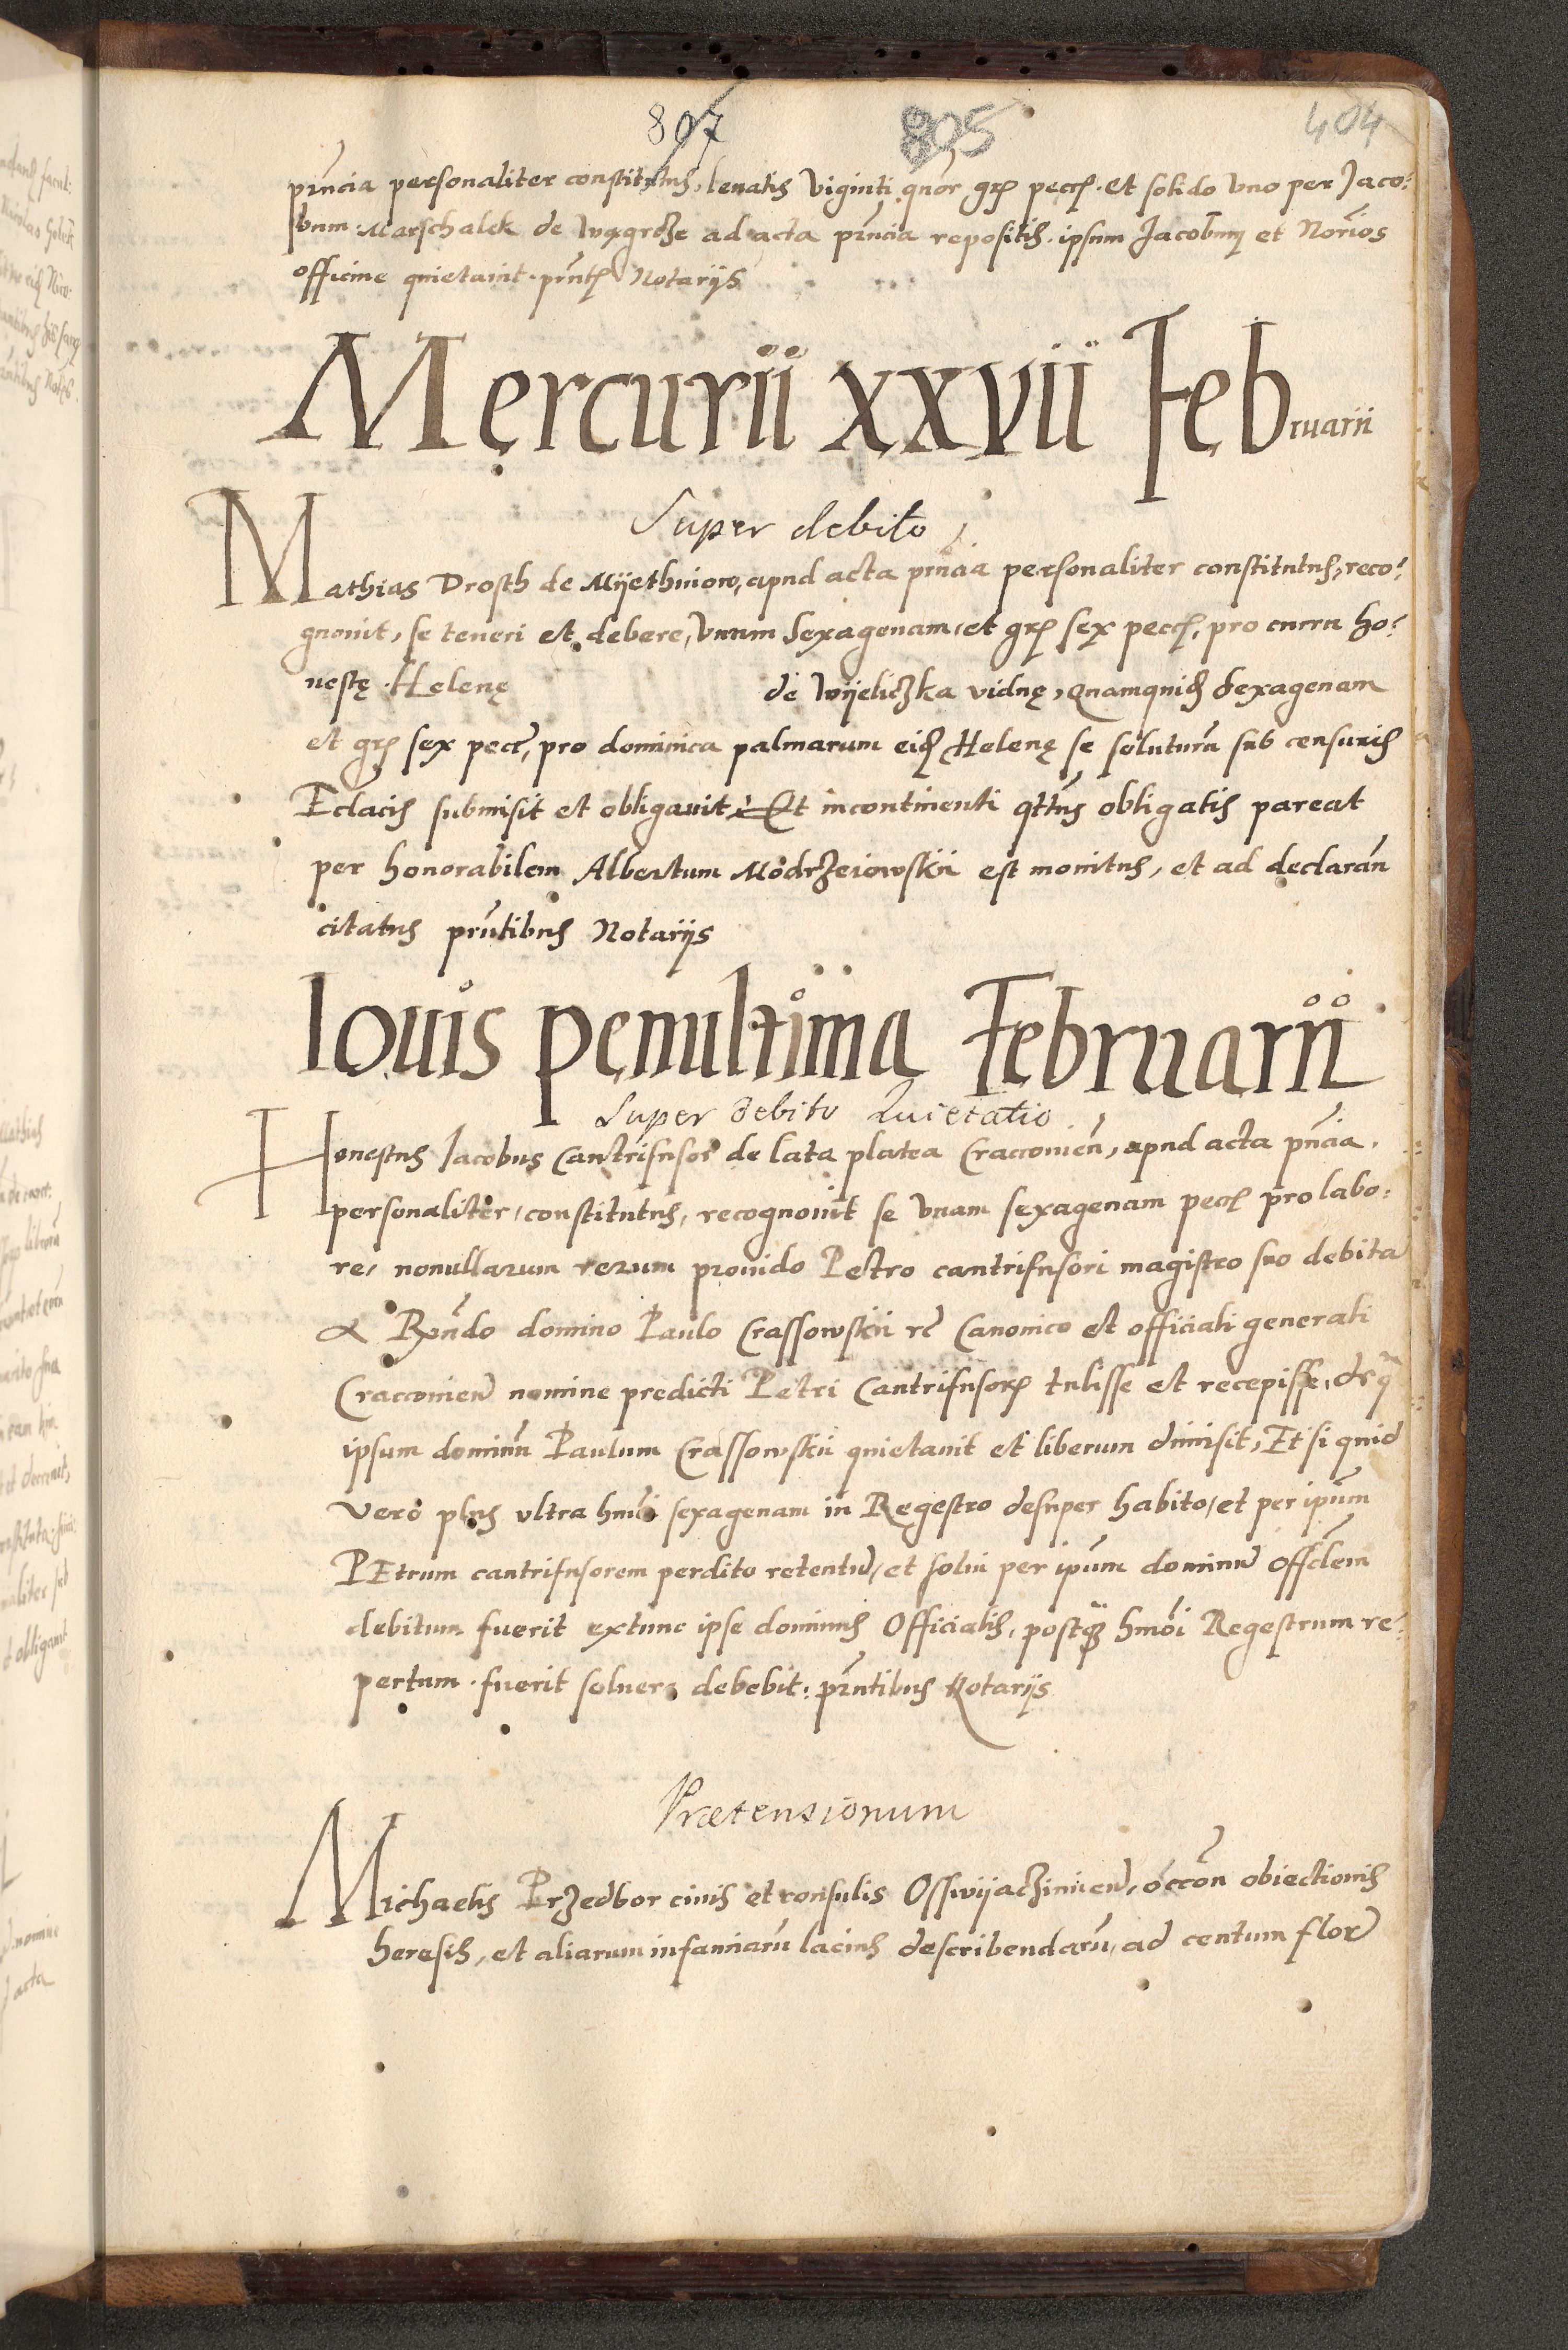 807 805 404
pñcia personaliter constitutus, levatis viginti qũor grꝭ peccꝭ. et solido vno per Jaco:
bum Marschalek de Wągrdze ad acta pñcia repositis. ipsum Jacobum et Norios
officine quietauit. prñtꝭ Notarijs
Mercurii xxvii Februarii
Super debito
Mathias Drosth de Mijethniow, apud acta pñcia personaliter constitutus, reco:
gnouit, se teneri et debere, Vnum Sexagenam, et grꝭ sex peccꝭ, pro cura ho:
nestę Helenę de Wijeliczka viduę, Quamquidꝭ Sexagenam
et grꝭ sex pecc, pro dominica palmarum eidꝭ Helenę se soluturũ sub censuris
Ecclācis submisit et obligauit. Et incontinenti q̃tnus obligatis pareat
per honorabilem Albertum Modrzeiowskii est monitus, et ad declarañ
citatus prñtibus Notarijs
Iouis penultima Februarii
Super debito Quietatio
Honestus Jacobus Cantrifusor de lata platea Craccouieñ, apud acta pñcia.
personaliter, constitutus, recognouit se vnam sexagenam pecꝭ pro labo:
re, nonullarum rerum prouido Petro cantrifusori magistro suo debitã
a Rñdo domino Paulo Crassowskii rc Canonico et officiali generali
Craccouieñ nomine predicti Petri Cantrifusorꝭ tulisse et recepisse, de q̃
ipsum dominũ Paulum Crassowskii quietauit et liberum dimisit, Et si quid
vero plus vltra hmõi sexagenam in Regestro desuper habito, et per ipũm
PEtrum cantrifusorem perdito retentũ, et solui per ipũm dominũ Offclem
debitum fuerit extunc ipse dominus Officialis, postq̃ hmõi Regestrum re:
pertum fuerit soluere debebit: prñtibus Notarijs
Prætensionum
Michaelis Przedbor ciuis et consulis Osswijaczimieñ, occõn obiectionis
heresis, et aliarum infamiarũ lacius describendarũ, ad centum flor